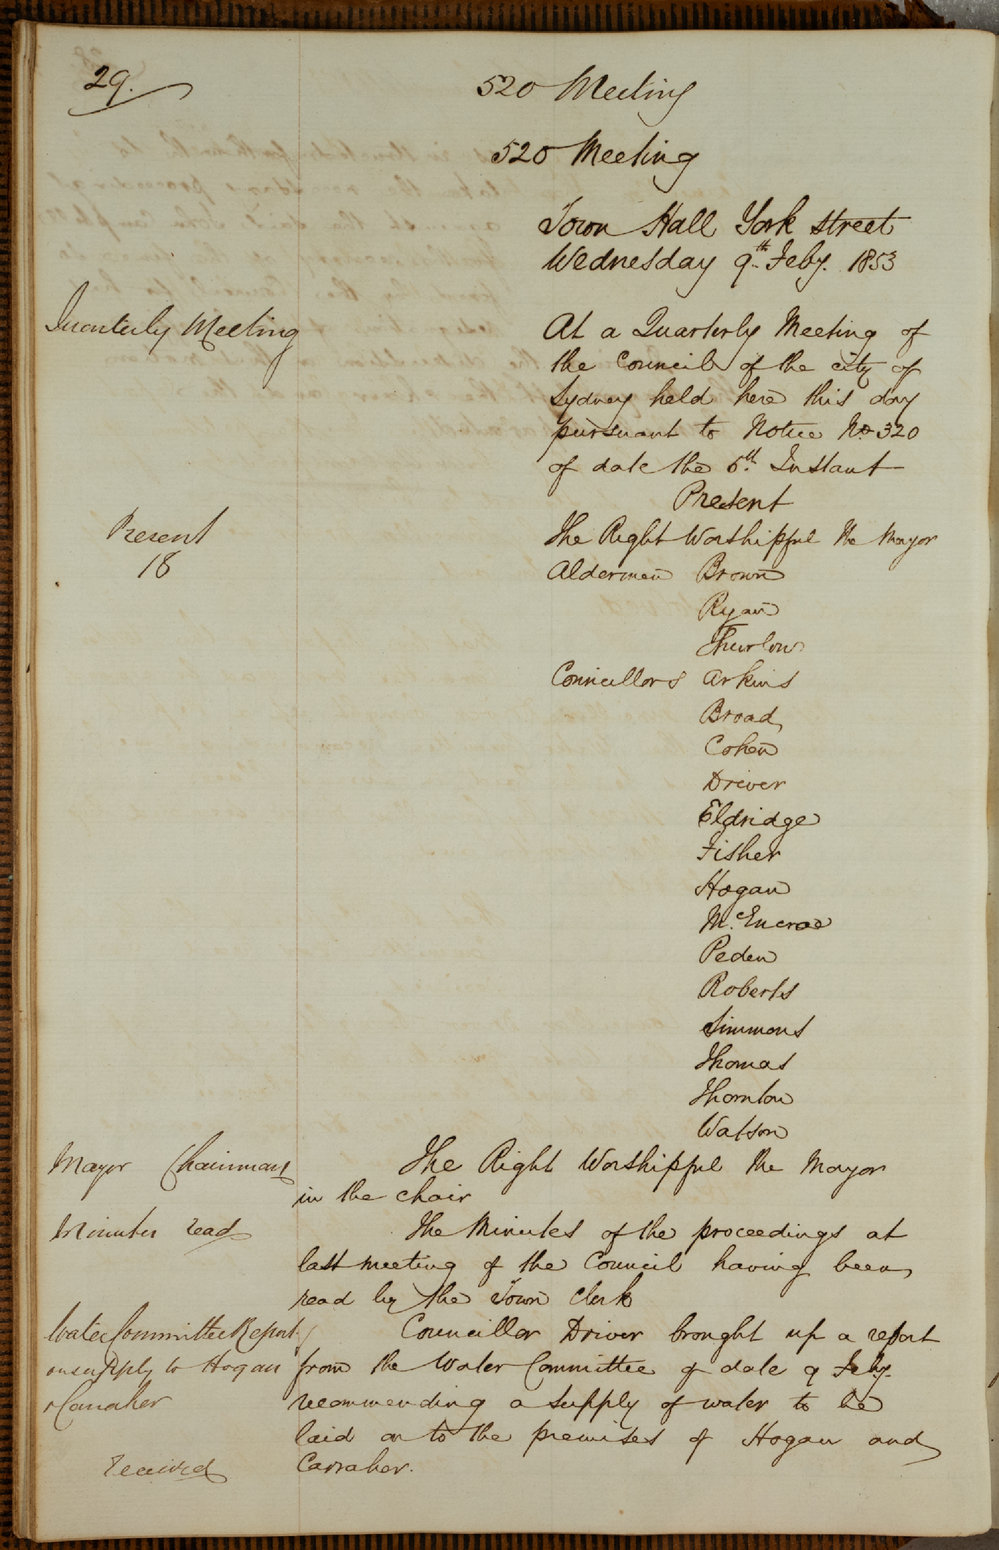 29.
520 Meeting
520 Meeting
Town Hall York street
Wednesday 9th Feby. 1853
Quarterly Meeting
At a Quarterly Meeting of
the Council of the city of
Sydney held here this day
pursuant to Notice No 320
of date the 5th Instant
Present
Present
18
The Right Worshipful the Mayor
Aldermen Brown
Ryan
Thurlow
Councillors Arkins
Broad
Cohen
Driver
Eldridge
Fisher
Hogan
McEncroe
Peden
Roberts
Simmons
Thomas
Thornton
Watson
Mayor Chairman
The Right Worshipful the Mayor
in the chair
Minutes read
The Minutes of the proceedings at
last meeting of the Council having been
read by the Town Clerk
Water Committee Report
on supply to Hogan
& Carraher
Received
Councillor Driver brought up a report
from the Water Committee of date 9 Feby.
recommending a supply of water to be
laid on to the premises of Hogan and
Carraher.